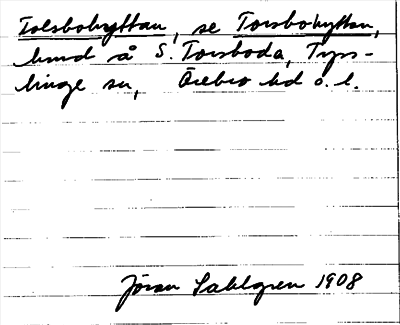 Tolsbohyttan, se Torsbohyttan,
lund å S. Torsboda, Tyss-
linge sn, Örebro hd o. l.
Jöran Sahlgren 1908